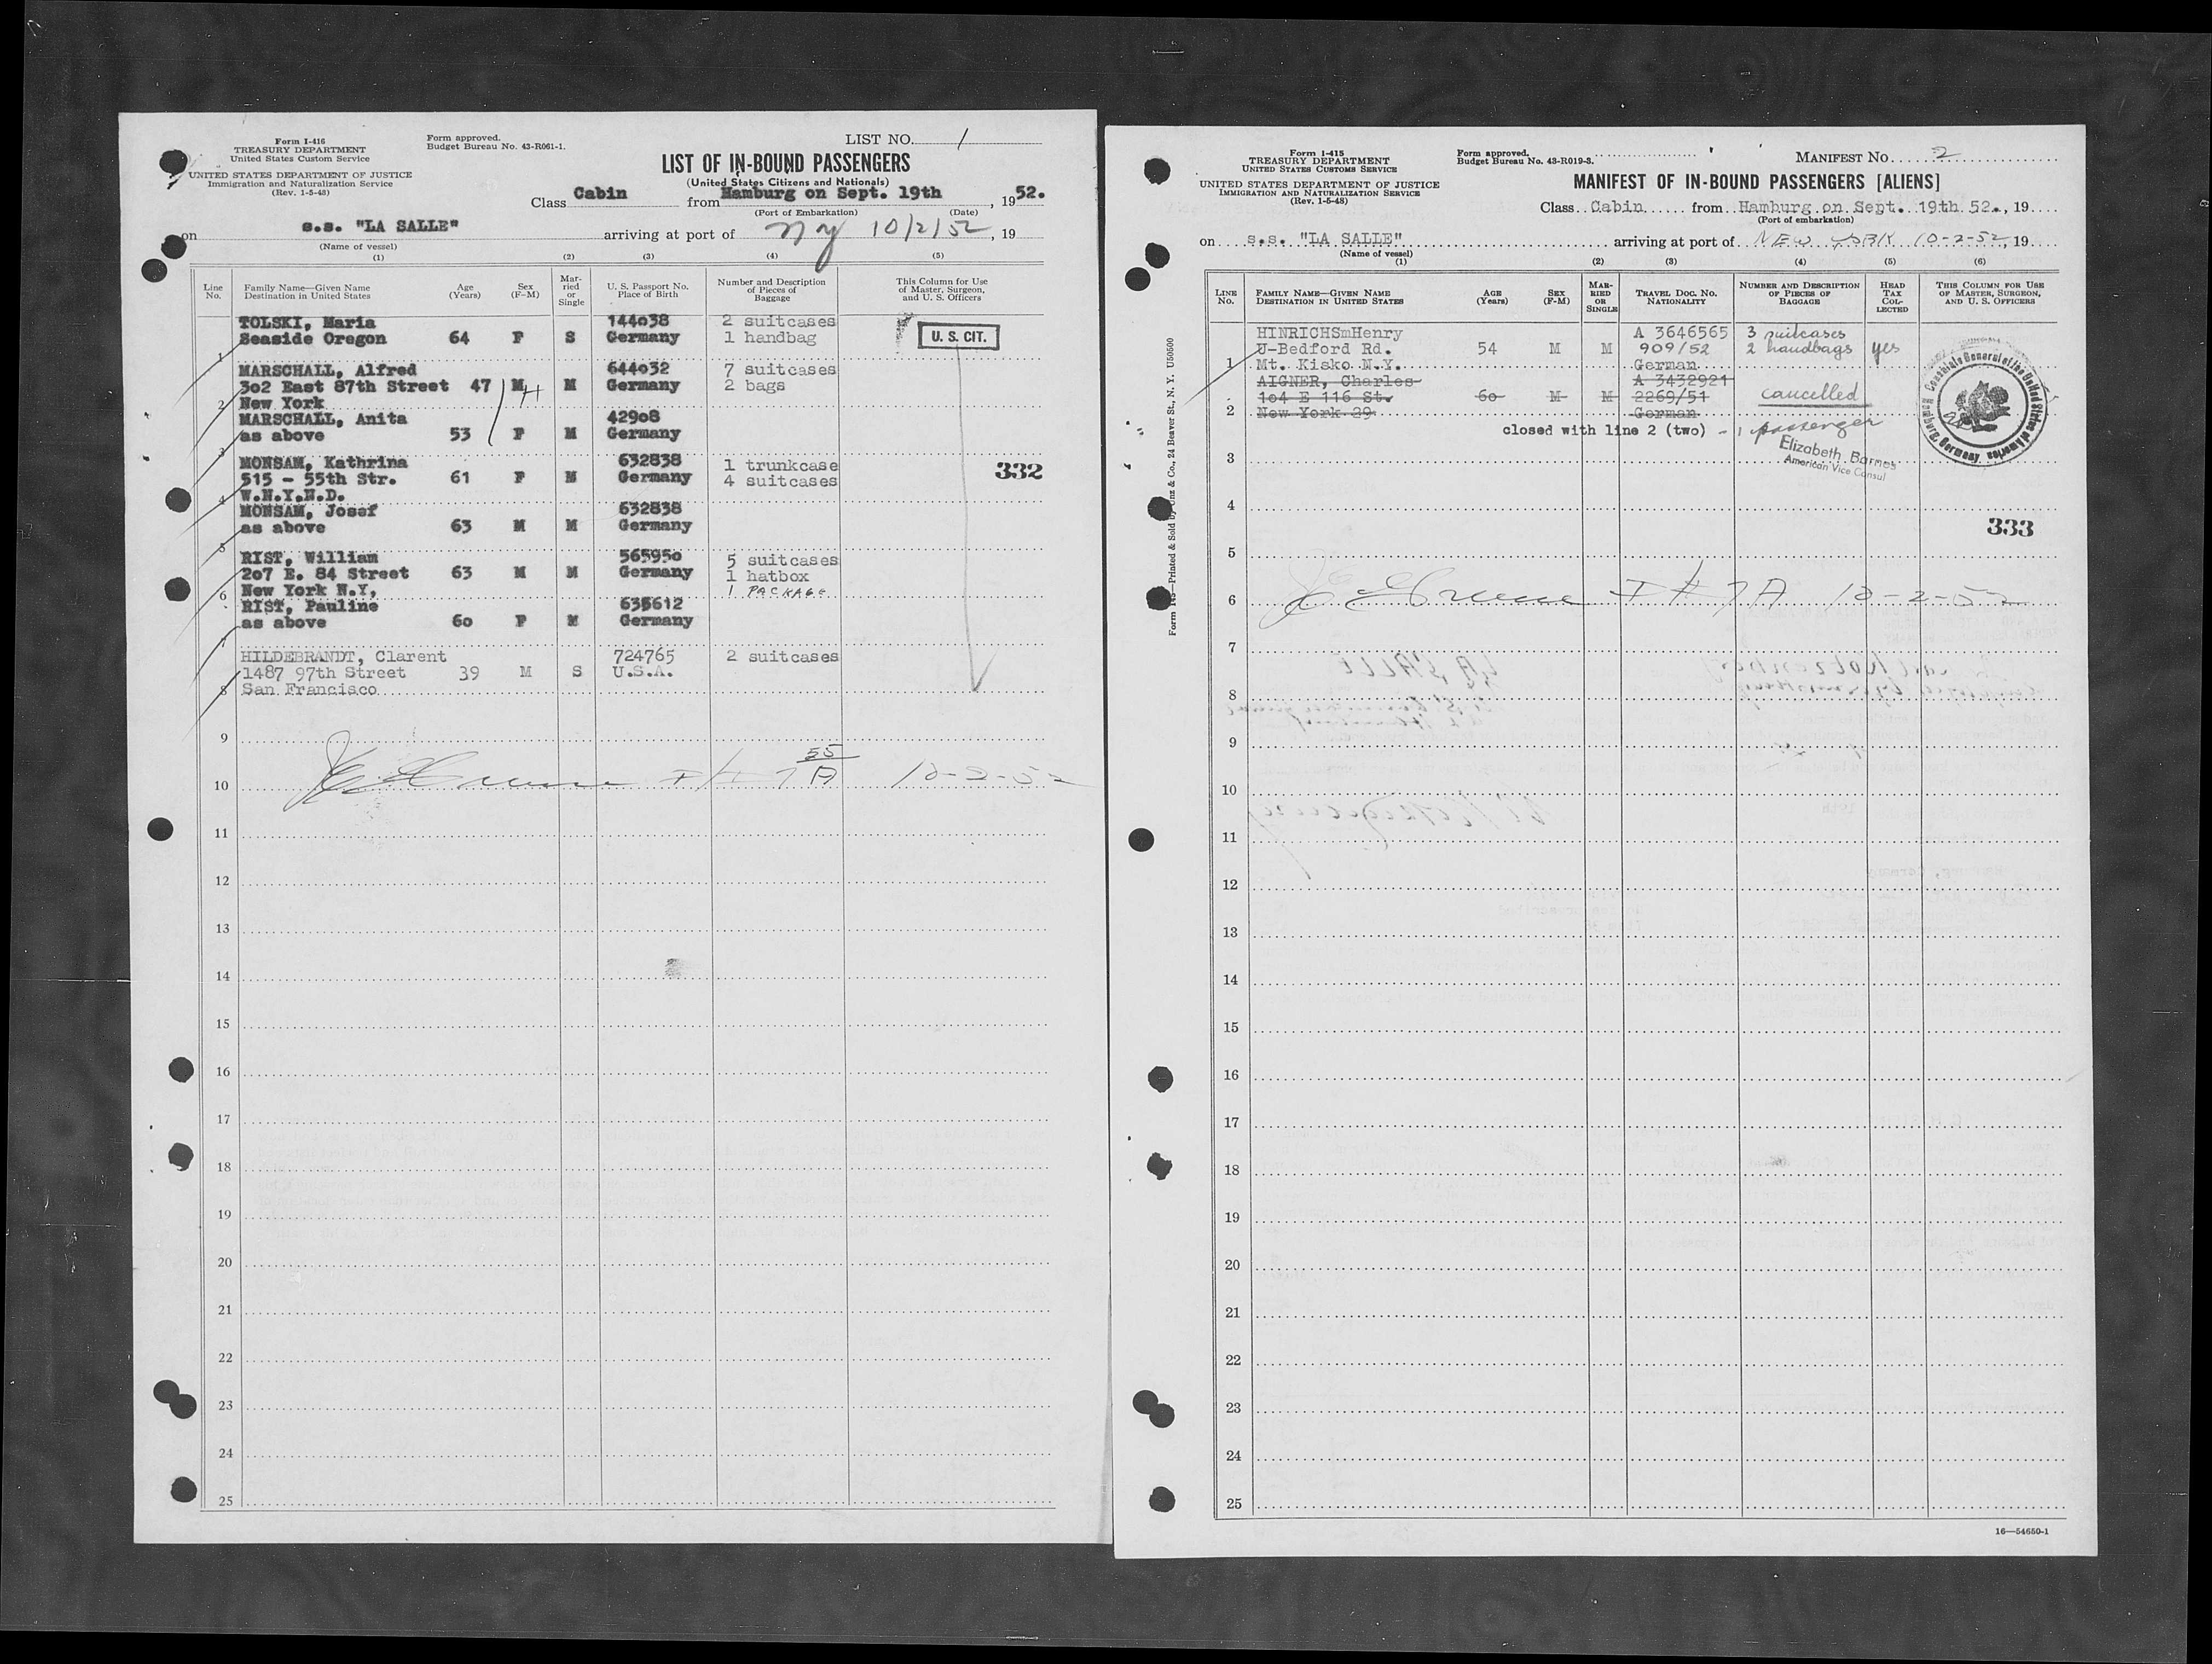 Form I-416
TREASURY DEPARTMENT
United States Custom Service
UNITED STATES DEPARTMENT OF JUSTICE
Immigration and Naturalization Service
(Rev. 1-5-48)
Form approved.
Budget Bureau No. 43-R061-1.
LIST NO. 1
LIST OF IN-BOUND PASSENGERS
(United States Citizens and Nationals)
Class Cabin from Hamburg on Sept. 19th, 1952.
(Port of Embarkation) (Date)
on s.s. "LA SALLE" arriving at port of NY 10/2/52, 19
(Name of vessel)
(1) (2) (3) (4) (5)
Line No. Family Name—Given Name Destination in United States Age (Years) Sex (F-M) Married or Single U. S. Passport No. Place of Birth Number and Description of Pieces of Baggage This Column for Use of Master, Surgeon, and U. S. Officers
TOLSKI, Maria 144038 2 suitcases
Seaside Oregon 64 F S Germany 1 handbag U. S. CIT.
1
MARSCHALL, Alfred 644032 7 suitcases
302 East 87th Street 47 M M Germany 2 bags
2 New York
MARSCHALL, Anita 42908
as above 53 F M Germany
3
MONSAM, Kathrina 632838 1 trunkcase
515 - 55th Str. 61 F M Germany 4 suitcases 332
4 W.N.Y.N.D.
MONSAM, Josef 632838
as above 63 M M Germany
5
RIST, William 565950 5 suitcases
207 E. 84 Street 63 M M Germany 1 hatbox
6 New York N.Y, 1 PACKAGE
RIST, Pauline 635612
as above 60 F M Germany
7
HILDEBRANDT, Clarent 724765 2 suitcases
1487 97th Street 39 M S U.S.A.
8 San Francisco
9
55
10 10-2-52
11
12
13
14
15
16
17
18
19
20
21
22
23
24
25
Form I-415
TREASURY DEPARTMENT
UNITED STATES CUSTOMS SERVICE
UNITED STATES DEPARTMENT OF JUSTICE
IMMIGRATION AND NATURALIZATION SERVICE
(Rev. 1-5-48)
Form approved.
Budget Bureau No. 43-R019-3.
MANIFEST NO. 2
MANIFEST OF IN-BOUND PASSENGERS [ALIENS]
Class Cabin from Hamburg on Sept. 19th 52., 19
(Port of embarkation)
on s.s. "LA SALLE" arriving at port of NEW YORK 10-2-52, 19
(Name of vessel)
(1) (2) (3) (4) (5) (6)
LINE NO. FAMILY NAME—GIVEN NAME DESTINATION IN UNITED STATES AGE (Years) SEX (F-M) MARRIED OR SINGLE TRAVEL DOC. NO. NATIONALITY NUMBER AND DESCRIPTION OF PIECES OF BAGGAGE HEAD TAX COLLECTED THIS COLUMN FOR USE OF MASTER, SURGEON, AND U. S. OFFICERS
HINRICHSmHenry A 3646565 3 suitcases
U-Bedford Rd. 54 M M 909/52 2 handbags yes
1 Mt. Kisko N.Y. German
AIGNER, Charles A 3432921
104 E 116 St. 60 M M 2269/51 cancelled
2 New York 29 German
closed with line 2 (two) - 1 passenger
Elizabeth Barnes
American Vice Consul
Consulate General of the United States of America
Hamburg, Germany
3
4
333
5
6 10-2-52
7
8
9
10
11
12
13
14
15
16
17
18
19
20
21
22
23
24
25
16—54650-1